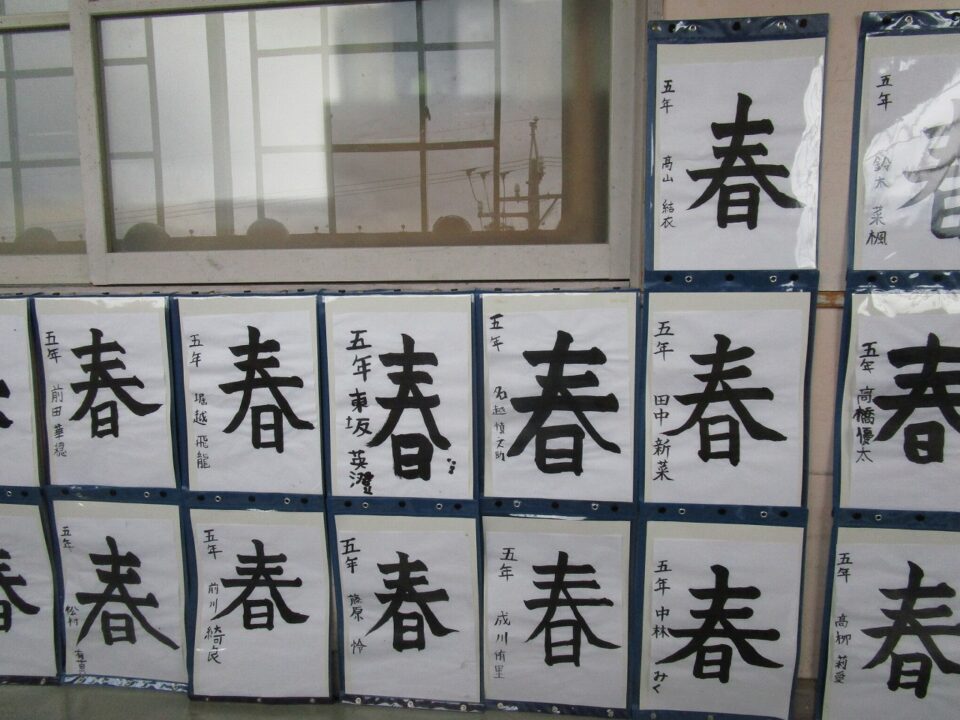 春
五年
高山 結衣
春
五年
鈴木 菜楓
春
五年
前田 華穂
春
五年
堀越 飛龍
春
五年
東坂 英澄
春
五年
名越慎之助
春
五年
田中 新菜
春
五年
高橋優太
春
五年
松村
春
五年
前川 綺良
春
五年
藤原 怜
春
五年
成川 侑里
春
五年
中林 みく
春
五年
高柳 莉愛